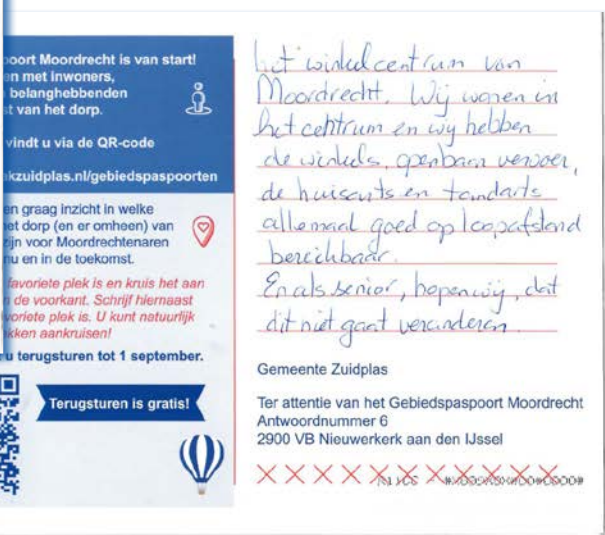 poort Moordrecht is van start!
en met inwoners,
belanghebbenden
st van het dorp.
vindt u via de QR-code
kzuidplas.nl/gebiedspaspoorten
en graag inzicht in welke
et dorp (en er omheen) van
zijn voor Moordrechtenaren
nu en in de toekomst.
favoriete plek is en kruis het aan
n de voorkant. Schrijf hiernaast
voriete plek is. U kunt natuurlijk
kken aankruisen!
u terugsturen tot 1 september.
Terugsturen is gratis!
het winkelcentrum van
Moordrecht. Wij wonen in
het centrum en wij hebben
de winkels, openbaar vervoer,
de huisarts en tandarts
allemaal goed op loopafstand
bereikbaar.
En als senior, hopen wij, dat
dit niet gaat veranderen.
Gemeente Zuidplas
Ter attentie van het Gebiedspaspoort Moordrecht
Antwoordnummer 6
2900 VB Nieuwerkerk aan den IJssel